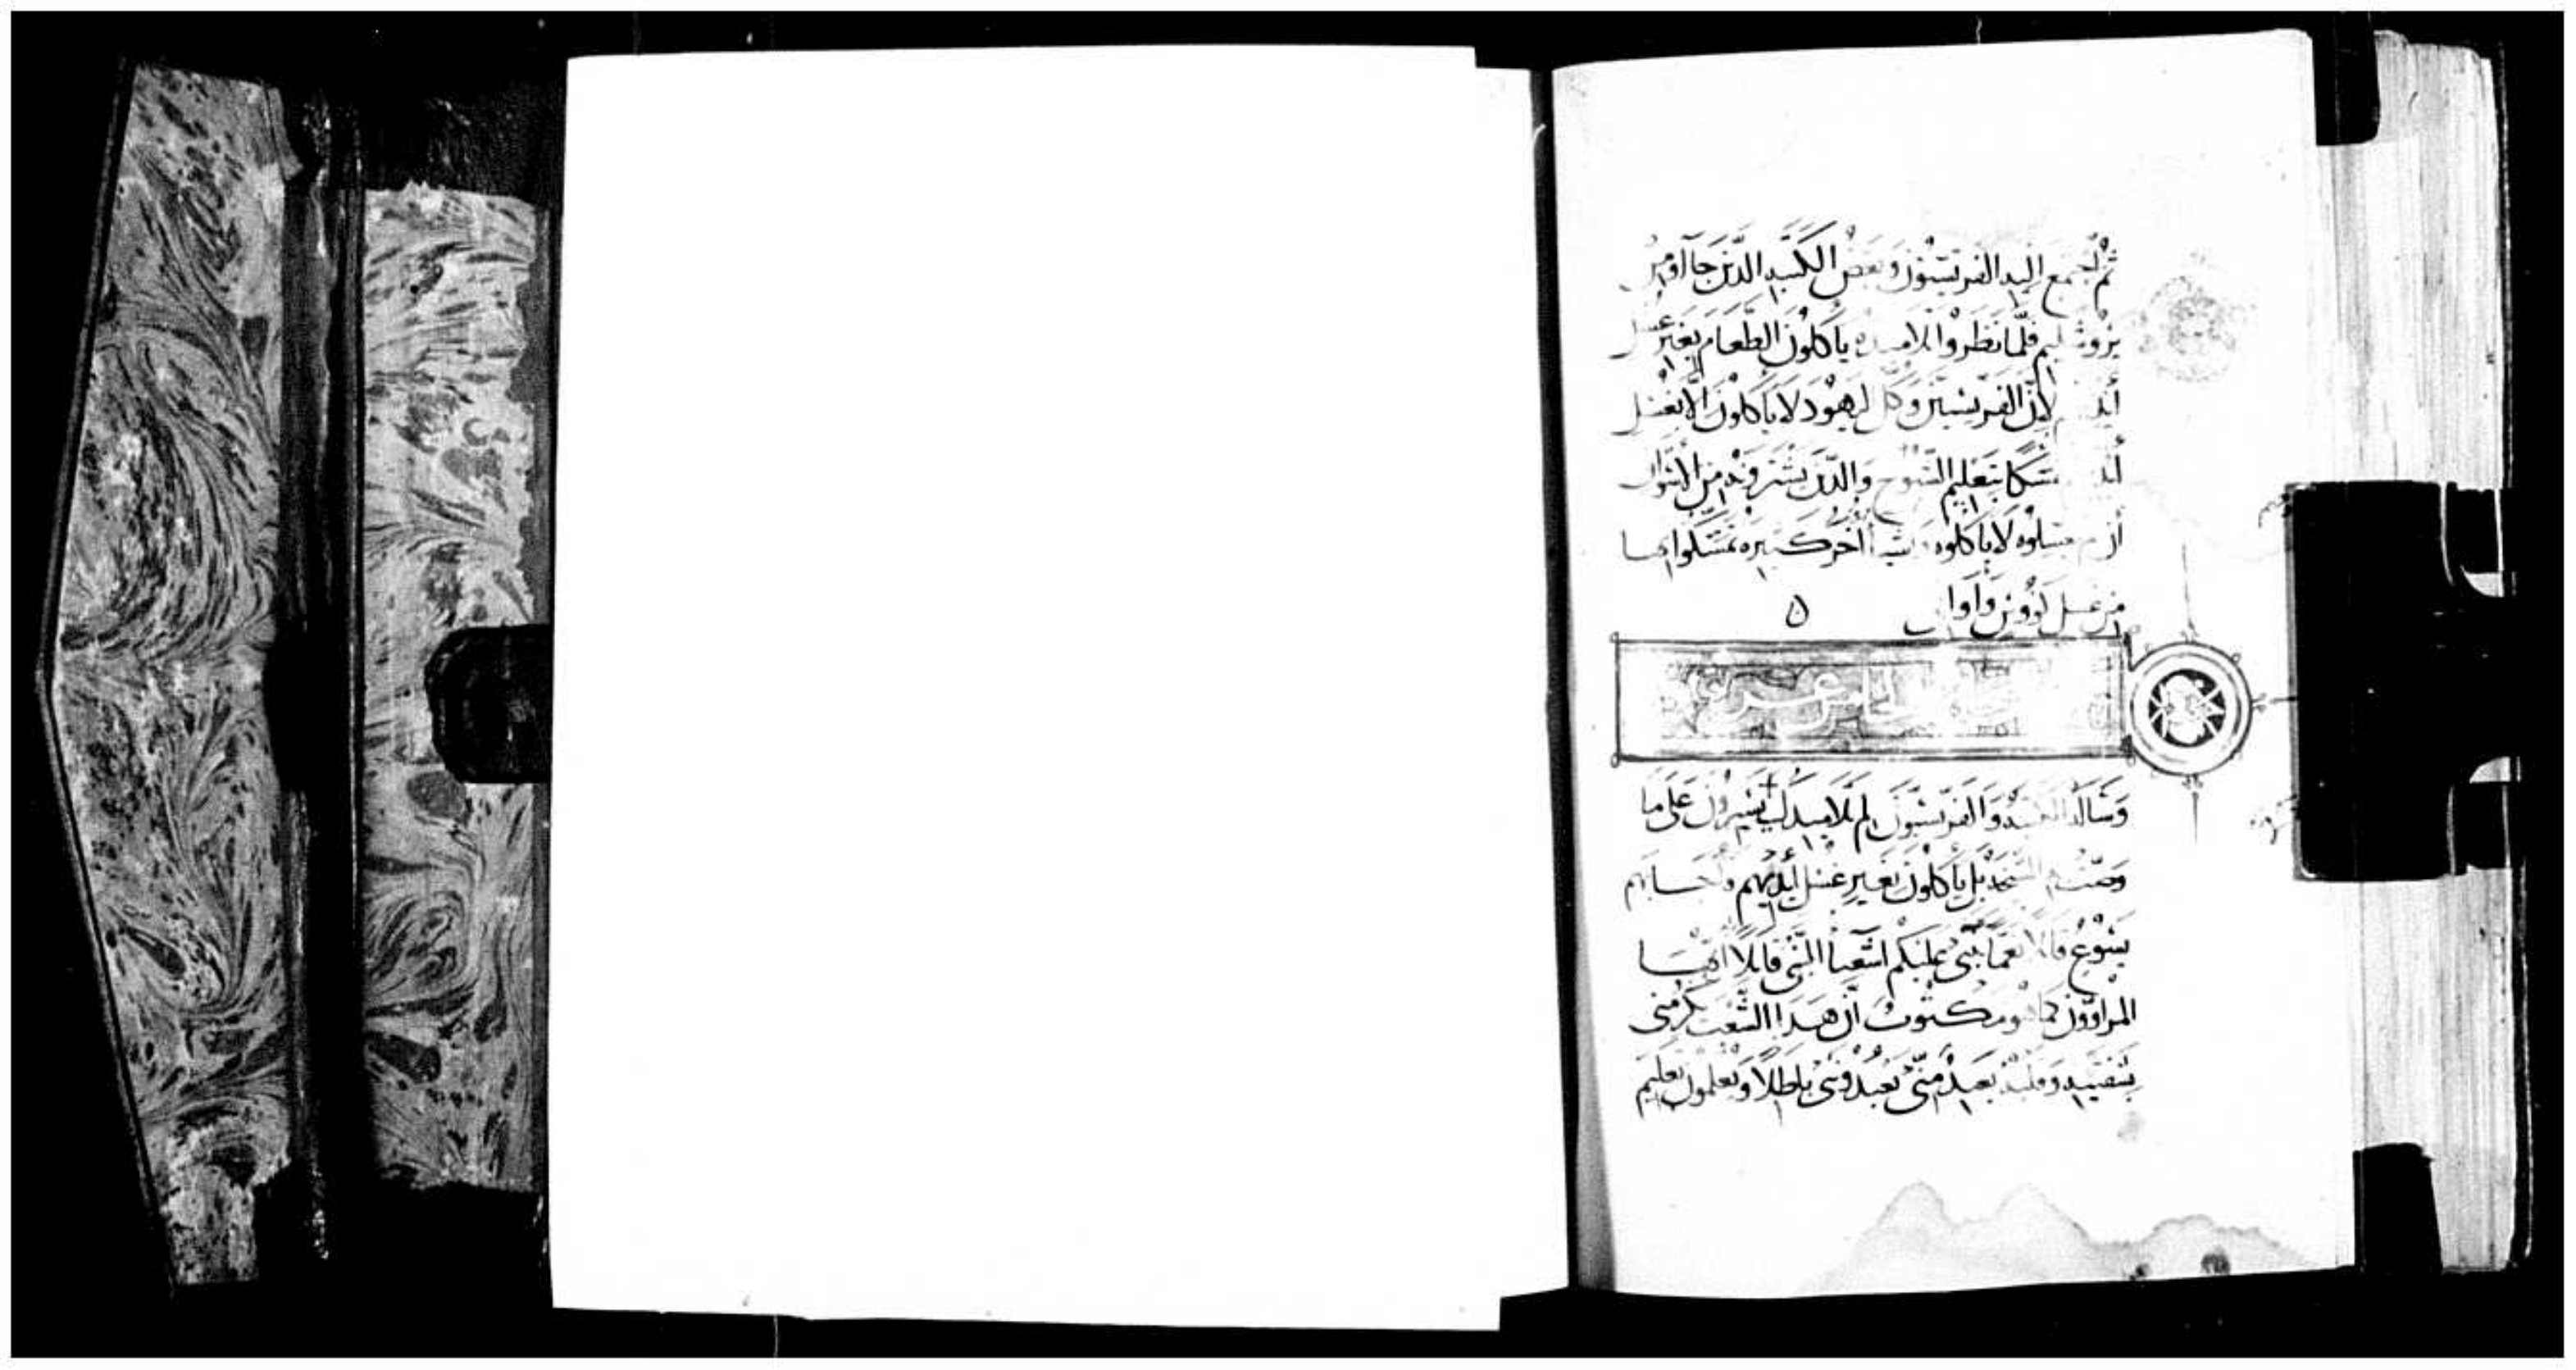 ثم اجتمع اليه الفريسيون وبعض الكتبه الذين جاآوا من
يروشليم فلما نظروا تلاميده ياكلون الطعام بغير غسل
لان الفريسيين وكل ليهود لا ياكلون الا بغسل
تمسكا بتعليم الشيوخ والدين يشترونه من الاسواق
ان لم يغسلوه لا ياكلوه واشيا أخر كثيره تمسكوا بها
من غسل كووس واواني
ن
وساله الكتبه والفريسيون لم تلاميدك لا يسيرون على ما
وصت به المشيخه بل ياكلون بغير غسل ايديهم فاجابهم
يسوع قايلا نعما تنبى عليكم اشعيا النبي قايلا ايها
المراوون كما هو مكتوب ان هدا الشعب يكرمني
بشفتيه وقلبه بعيد مني يعبدوني باطلا ويعلمون تعليم